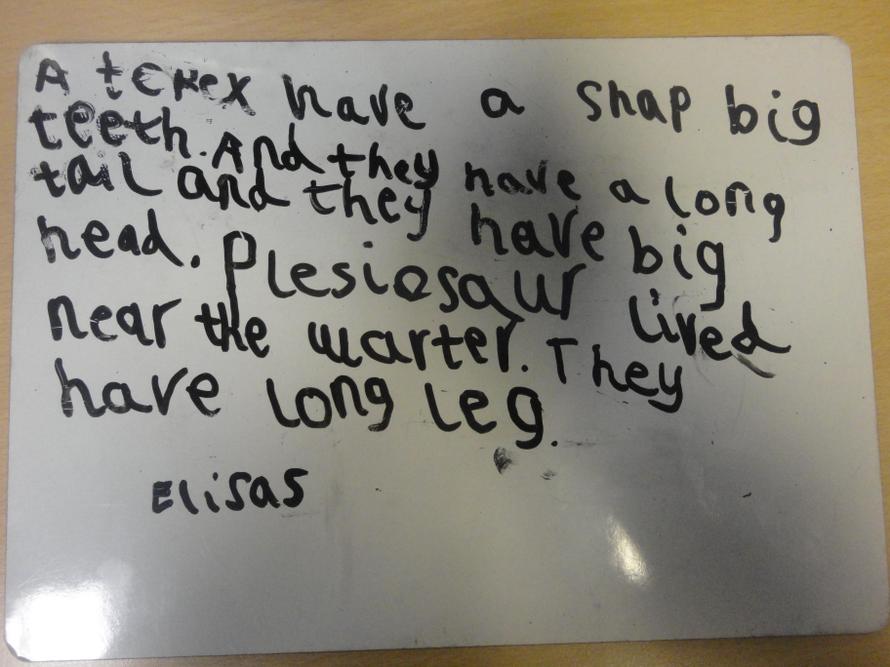 A terex have a shap big
teeth. And they have a long
tail and they have big
head. Plesiosaur lived
near the warter. They
have long leg.
Elisas